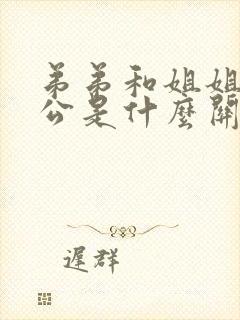 弟弟和姐姐
公是什麼關
遲群